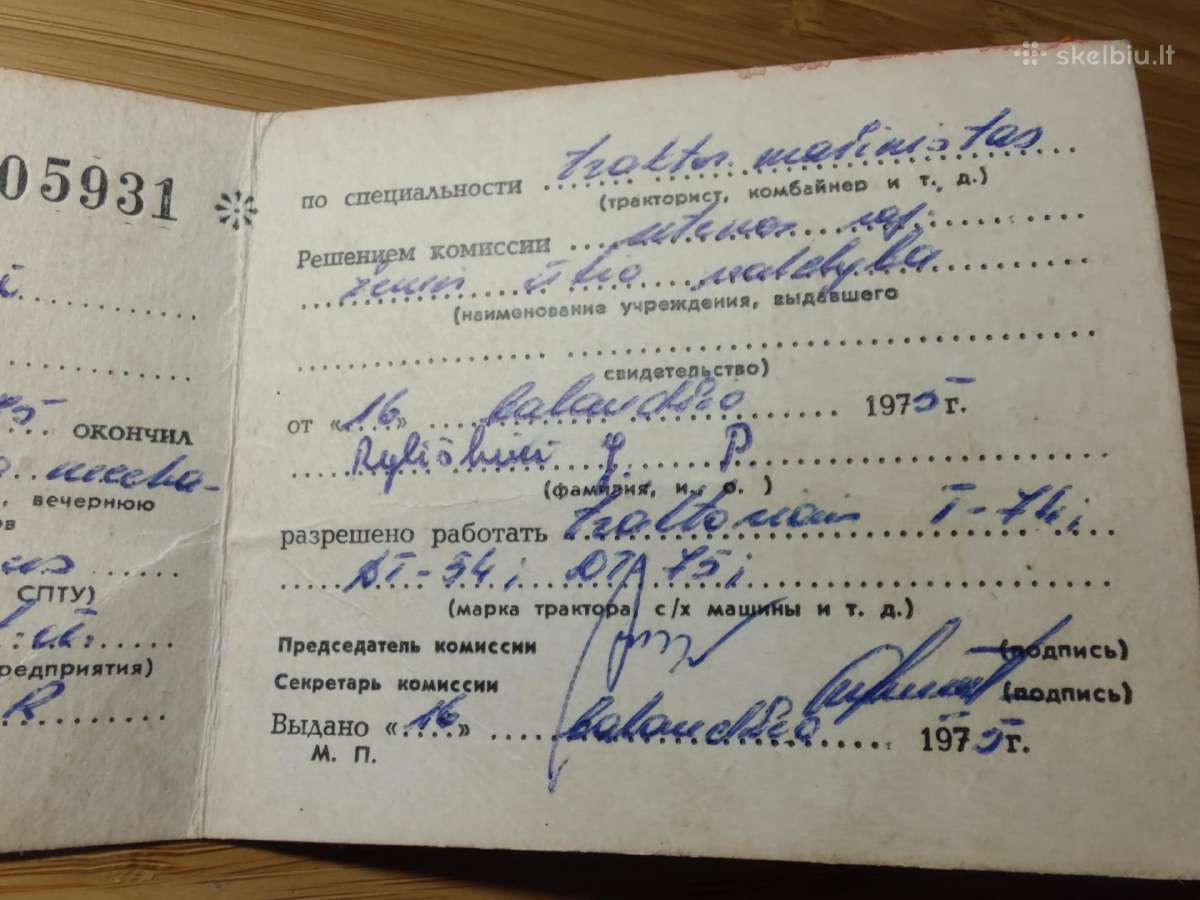 skelbiu.lt
05931
окончил
mecha-
, вечернюю
СПТУ)
редприятия)
по специальности traktor. mašinistas
(тракторист, комбайнер и т. д.)
Решением комиссии Utenos raj.
žemės ūkio valdyba
(наименование учреждения, выдавшего
свидетельство)
от «16» balandžio 1975 г.
(фамилия, и., о.)
разрешено работать traktoriais T-74;
DT-54; DT-75;
(марка трактора, с/х машины и т. д.)
Председатель комиссии (подпись)
Секретарь комиссии (подпись)
Выдано «16» balandžio 1975 г.
М. П.